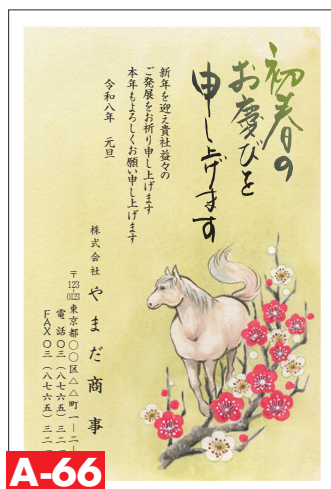 初春の
お慶びを
申し上げます
新年を迎え貴社益々の
ご発展をお祈り申し上げます
本年もよろしくお願い申し上げます
令和八年 元旦
株式会社 やまだ商事
〒123-0123 東京都〇〇区△△町一ー二ー
電話〇三(八七六五)三二
FAX〇三(八七六五)三二
A-66